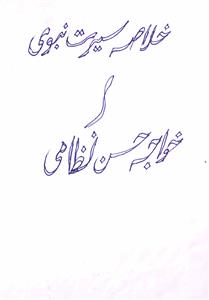 خلاصہ سیرت نبوی
از
خواجہ حسن نظامی